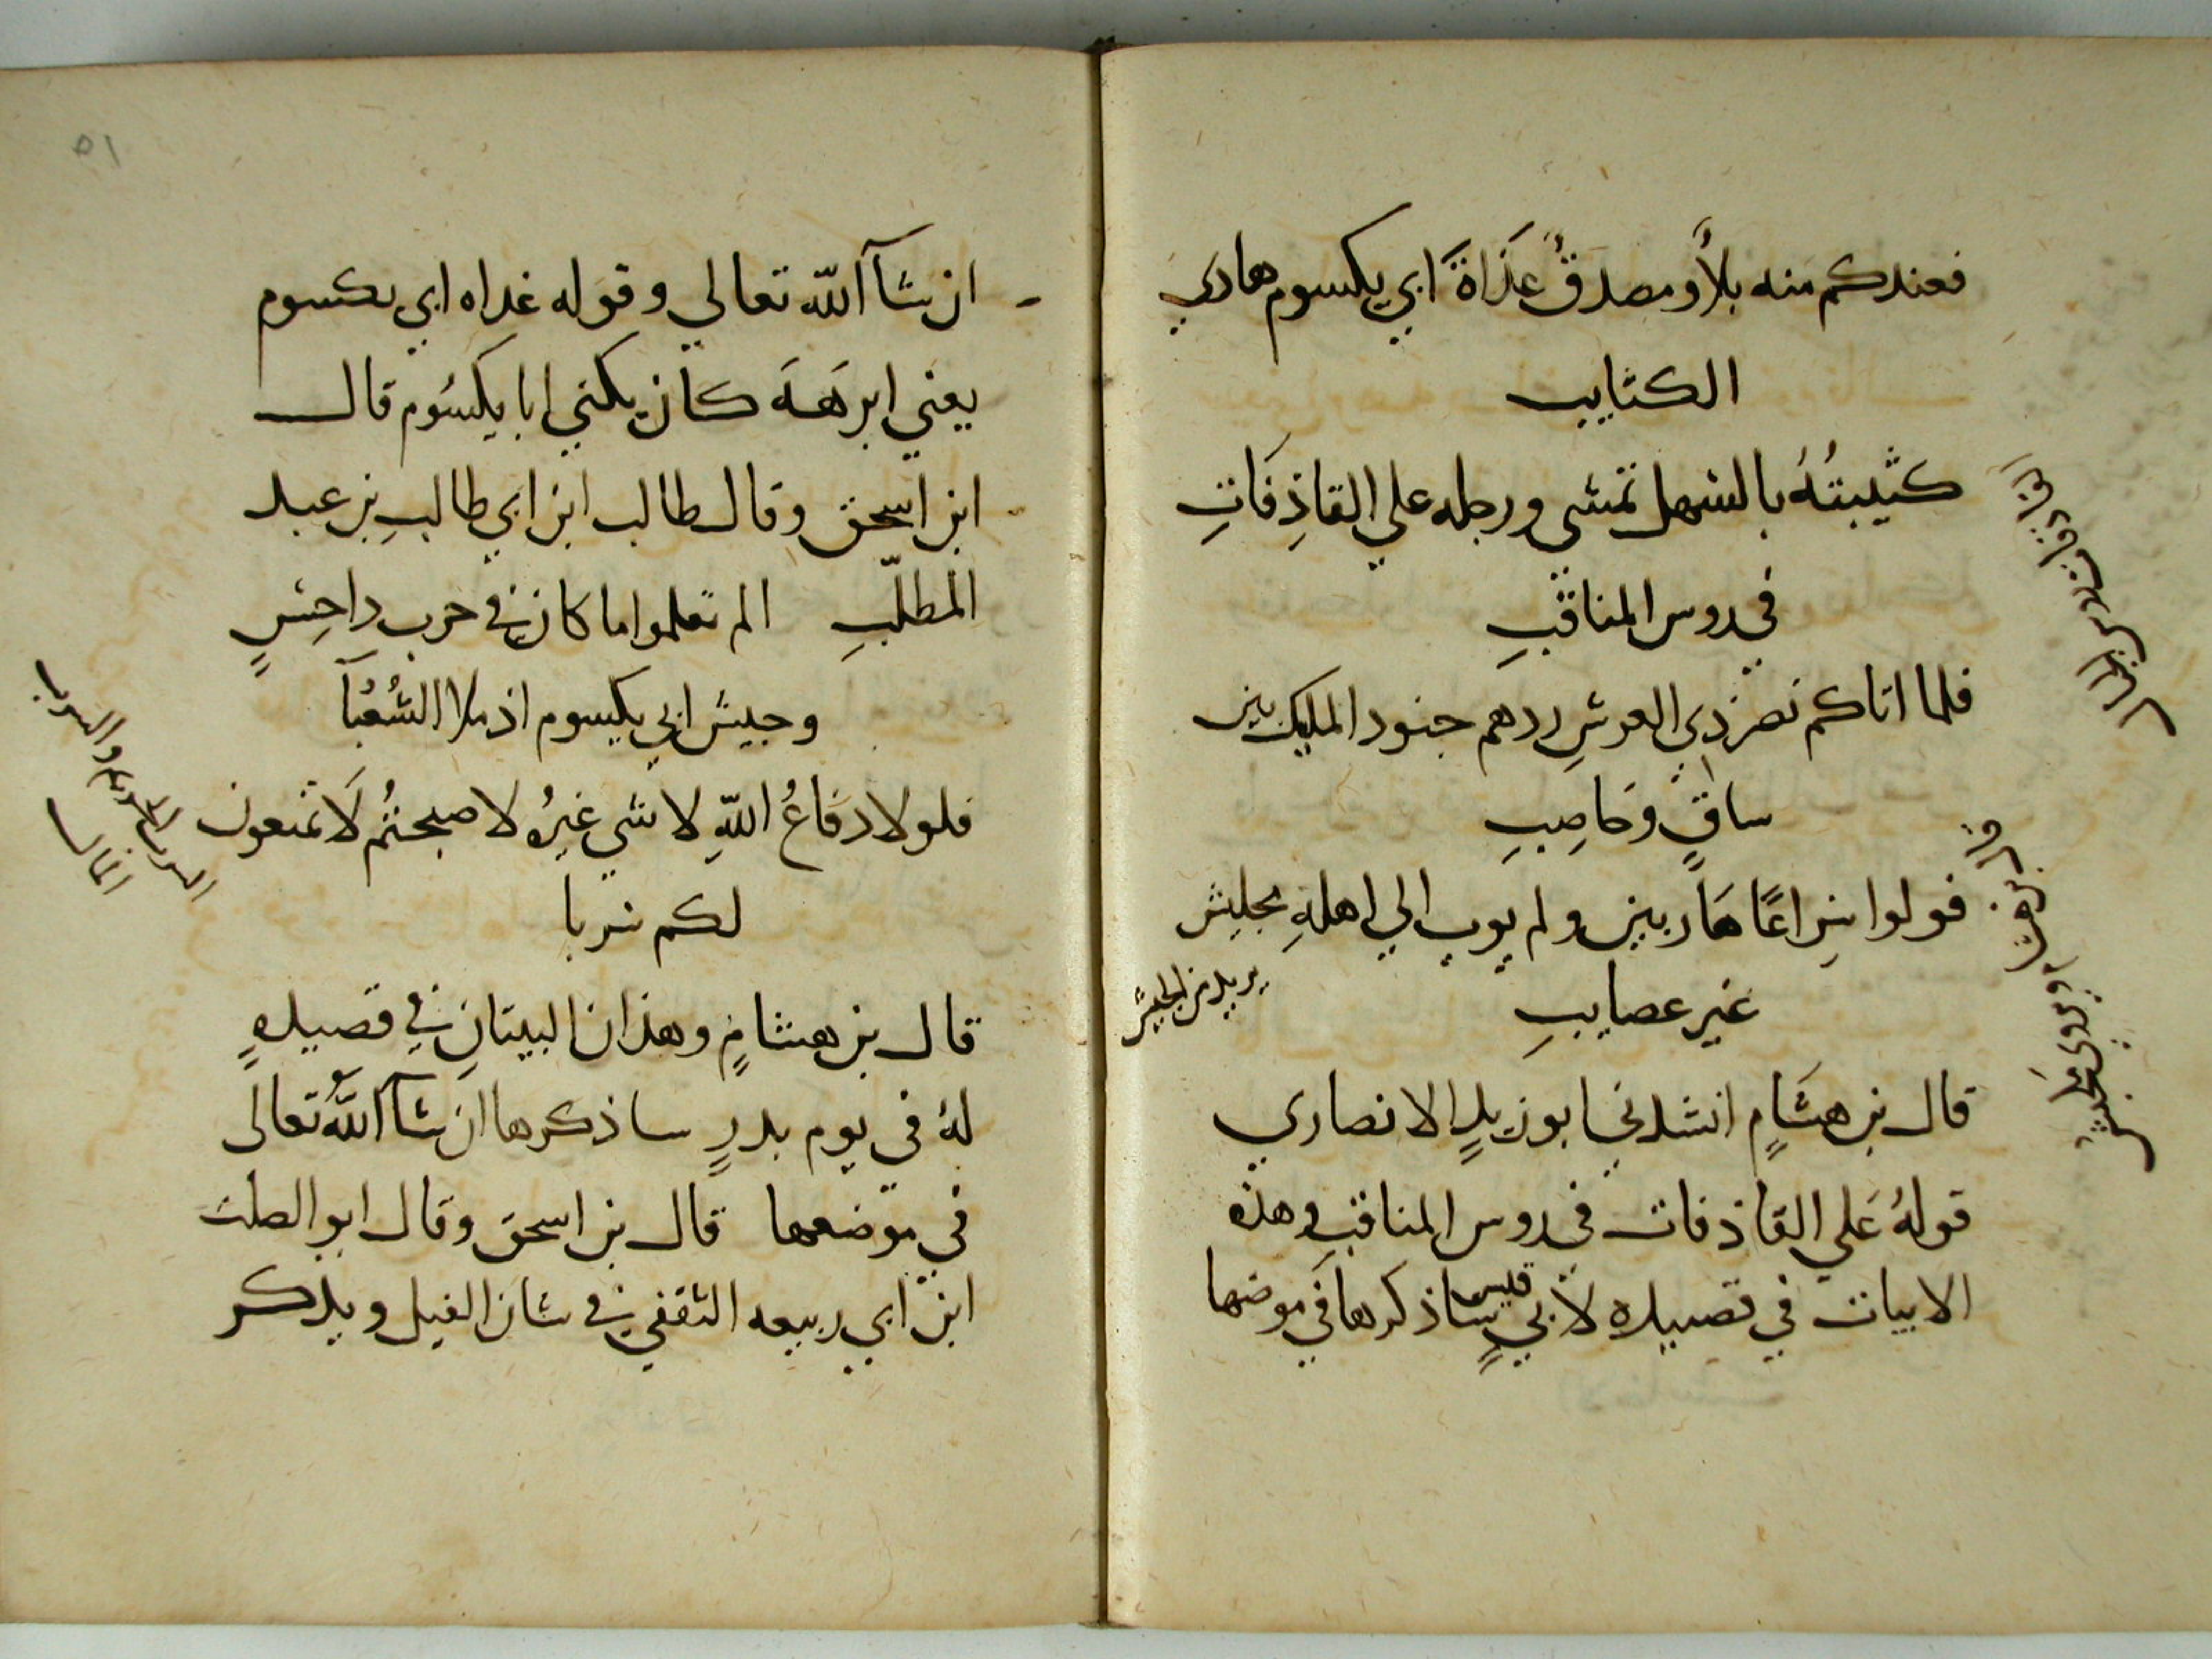 فعندكم منه بلاً ومصدقٌ غَدَاةَ ابي يكسوم هادي
الكتايب
كتيبتُهُ بالسهل تمشي ورجله علي القاذِفَاتِ
في روس المناقبِ
فلما اتاكم نصر ذي العرشِ ردهم جنود المليك بين
سافٍ وحاصِبِ
فولوا سِراعًا هَاربين ولم يوب الي اهلهِ بجليش
غير عصايبِ
يريد من الجيش
قال بن هشَامٍ انشدني ابو زيدٍ الانصاري
قولهُ عَلي القاذفات في روس المناقب وهذه
الابيات في قصيده لابي قيسٍ ساذكرها في موضها
٥١
ان شآ اللّه تعالي وقوله غداه ابي يكسوم
يعني ابرَهَهَ كان يكني ابا يكسُوم قال
ابن اسحق وقال طالب ابن ابي طالبِ بن عبد
المطلّبِ الم تعلموا ما كان في حرب داحِسٍ
وجيش ابي يكسوم اذ ملا الشُعبَآ
فلولا دفَاعُ اللّهِ لا شي غيرُه لاصبحتُم لَا تمنعون
لكم سربا
قال بن هشامٍ وهذان البيتانِ في قصيدهٍ
لهُ في يوم بدرٍ ساذكرها ان شآ اللّهُ تعالى
في موضعها قال بن اسحق وقال ابو الصلت
ابن ابي ربيعه الثقفي في شان الفيل ويذكر